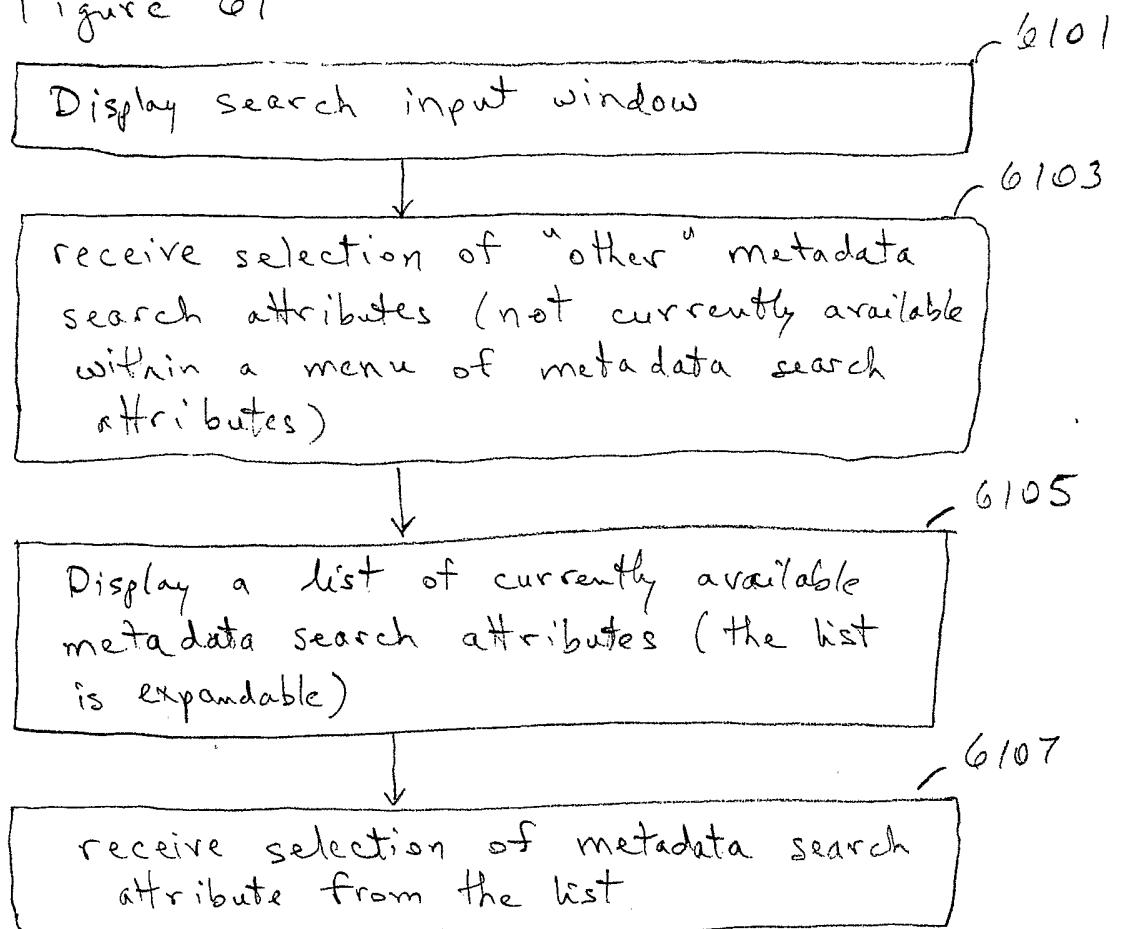 Figure 61
6101
Display search input window
6103
receive selection of "other" metadata
search attributes (not currently available
within a menu of metadata search
attributes)
6105
Display a list of currently available
metadata search attributes (the list
is expandable)
6107
receive selection of metadata search
attribute from the list